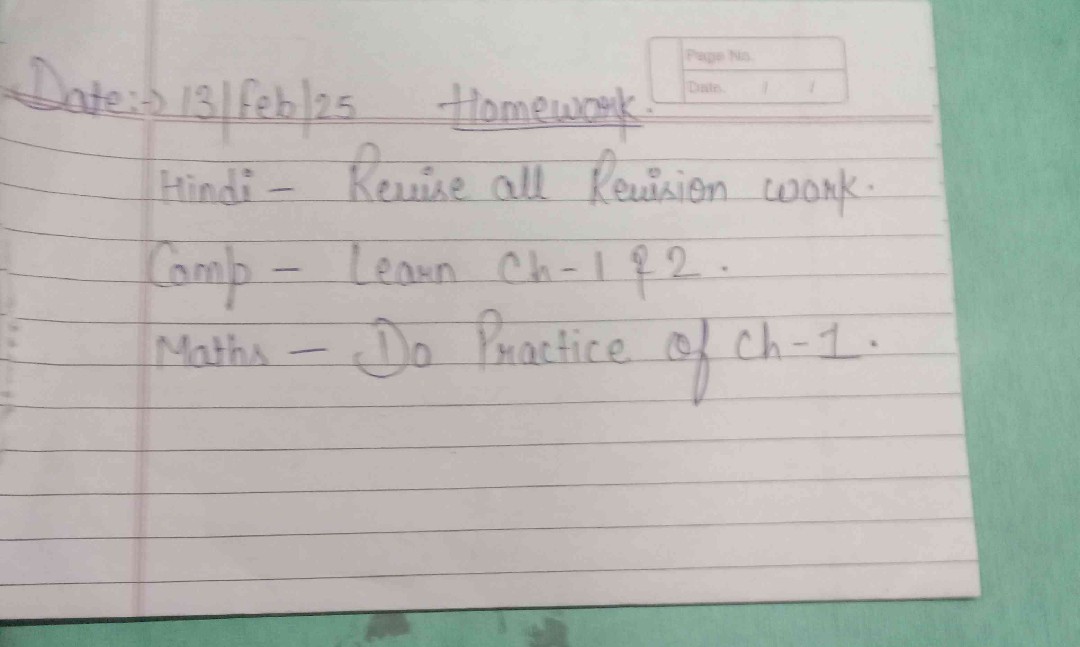 Page No.
Date. / /
Date:-> 13/Feb/25 Homework.
Hindi - Revise all Revision work.
Comp - Learn Ch-1 & 2.
Maths - Do Practice of Ch-1.